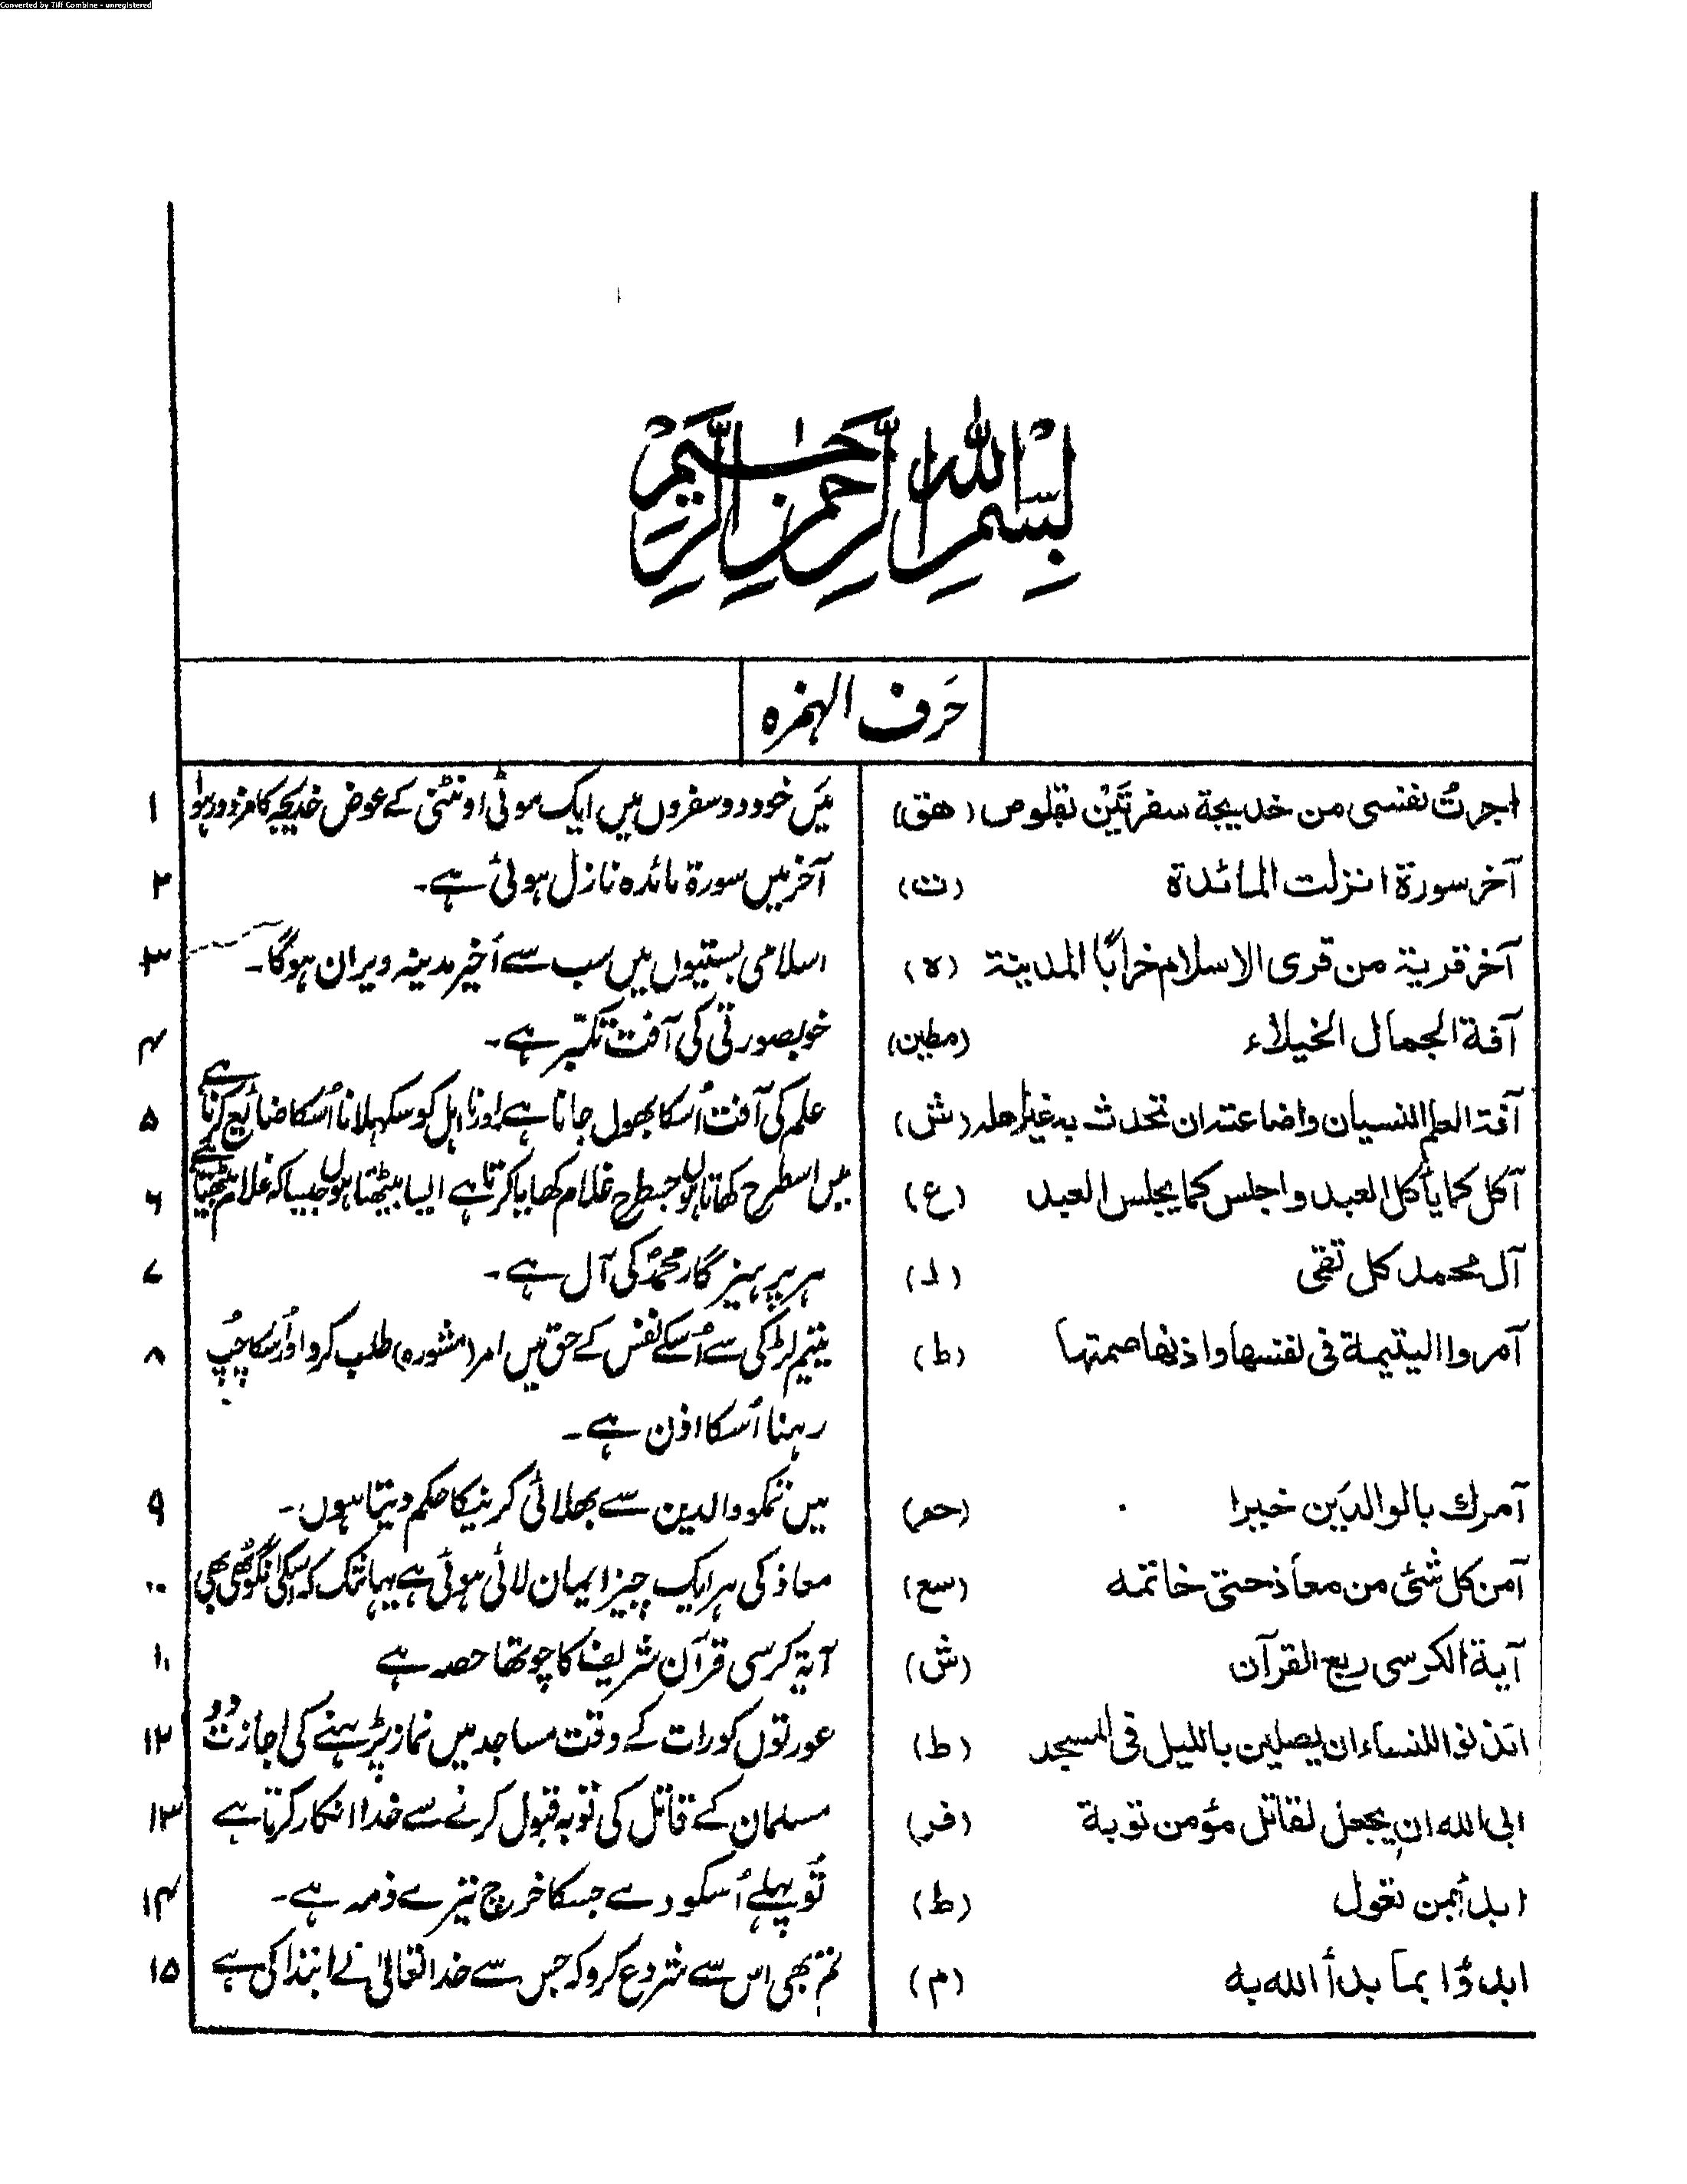 Converted by Tiff Combine - unregistered
بسم الله الرحمن الرحیم
حرف الهمزه
اجرتُ نفسی من خدیجة سفرتَیْن بقلوص (هق) مَیں خود دو سفروں میں ایک موٹی اونٹنی کے عوض خدیجہ کا مزدور ہوا ۱
آخر سورة انزلت المائدة (ت) آخر میں سورۃ مائدہ نازل ہوئی ہے۔ ۲
آخر قریة من قری الاسلام خرابًا المدینة (ه) اسلامی بستیوں میں سب سے اَخیر مدینہ ویران ہوگا۔ ۳
آفة الجمال الخیلاء (مطین) خوبصورتی کی آفت تکبّر ہے۔ ۴
آفة العلم النسیان واضاعتہ ان تحدث بہ غیر اهلہ (ش) علم کی آفت اُسکا بھول جانا ہے اور نا اہل کو سکہلانا اُسکا ضائع کرنا ہے ۵
آکل کما یأکل العبد واجلس کما یجلس العبد (ع) میں اسطرح کھاتا ہوں جسطرح غلام کھایا کرتا ہے ایسا بیٹھتا ہوں جیسا کہ غلام بیٹھتا ہے ۶
آل محمد کل تقی (د) ہر پرہیزگار محمدؐ کی آل ہے۔ ۷
آمروا الیتیمة فی نفسها واذنها صمتها (ط) یتیم لڑکی سے اُسکے نفس کے حق میں امر (مشورہ) طلب کرو اور اُسکا چُپ ۸
رہنا اُسکا اذن ہے۔
آمرك بالوالدَین خیرا (حم) میں تمکو والدین سے بھلائی کرنیکا حکم دیتا ہوں۔ ۹
آمن کل شئ من معاذ حتی خاتمه (سع) معاذ کی ہر ایک چیز ایمان لائی ہوئی ہے یہانتک کہ اسکی انگوٹھی بھی ۱۰
آیة الکرسی ربع القرآن (ش) آیۃ کرسی قرآن شریف کا چوتھا حصہ ہے ۱۱
ائذنوا للنساء ان یصلین باللیل فی المسجد (ط) عورتوں کو رات کے وقت مساجد میں نماز پڑہنے کی اجازت دو ۱۲
ابی الله ان یجعل لقاتل مؤمن توبة (فر) مسلمان کے قاتل کی توبہ قبول کرنے سے خدا انکار کرتا ہے ۱۳
ابدأ بمن تعول (ط) تُو پہلے اُسکو دے جسکا خرچ تیرے ذمہ ہے۔ ۱۴
ابدؤا بما بدأ الله به (م) تم بھی اس سے شروع کرو کہ جس سے خدا تعالیٰ نے ابتدا کی ہے ۱۵